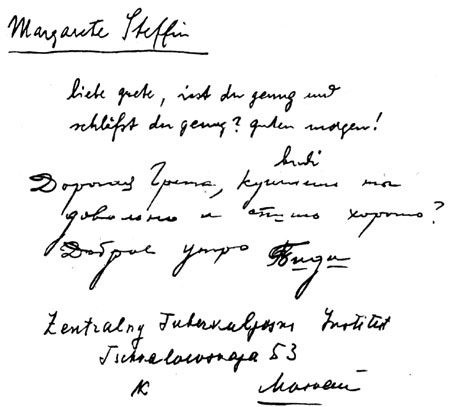 Margarete Steffin
liebe grete, isst du genug und
schläfst du genug? guten morgen!
bidi
Дорогая Грета, кушаешь ты
довольно и спишь хорошо?
Доброе утро Биди
Zentralny Tuberkuljosny Institut
53
K